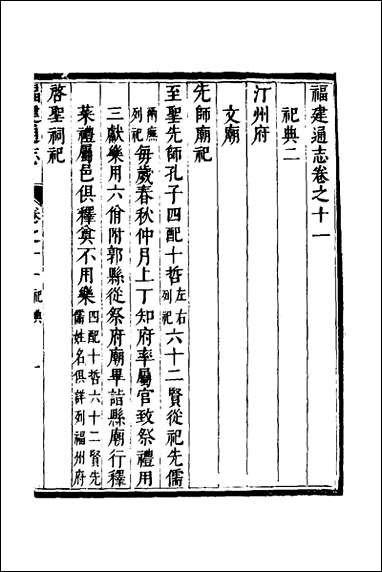 福建通志卷之十一
祀典二
汀州府
文廟
先師廟祀
至聖先師孔子四配十哲左右列祀六十二賢從祀先儒
兩廡列祀每歲春秋仲月上丁知府率屬官致祭禮用
三獻樂用六佾附郭縣從祭府廟畢詣縣廟行釋
菜禮屬邑俱釋奠不用樂四配十哲六十二賢先儒姓名俱詳列福州府
啓聖祠祀
福建通志 卷之十一 祀典 一